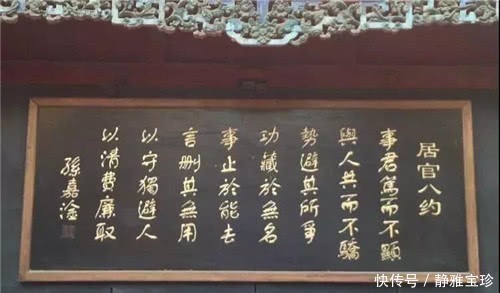 居官八约
事君笃而不顯
與人共而不驕
勢避其所爭
功藏於無名
事止於能去
言删其無用
以守獨避人
以清費廉取
孫嘉淦
快传号/静雅宝珍